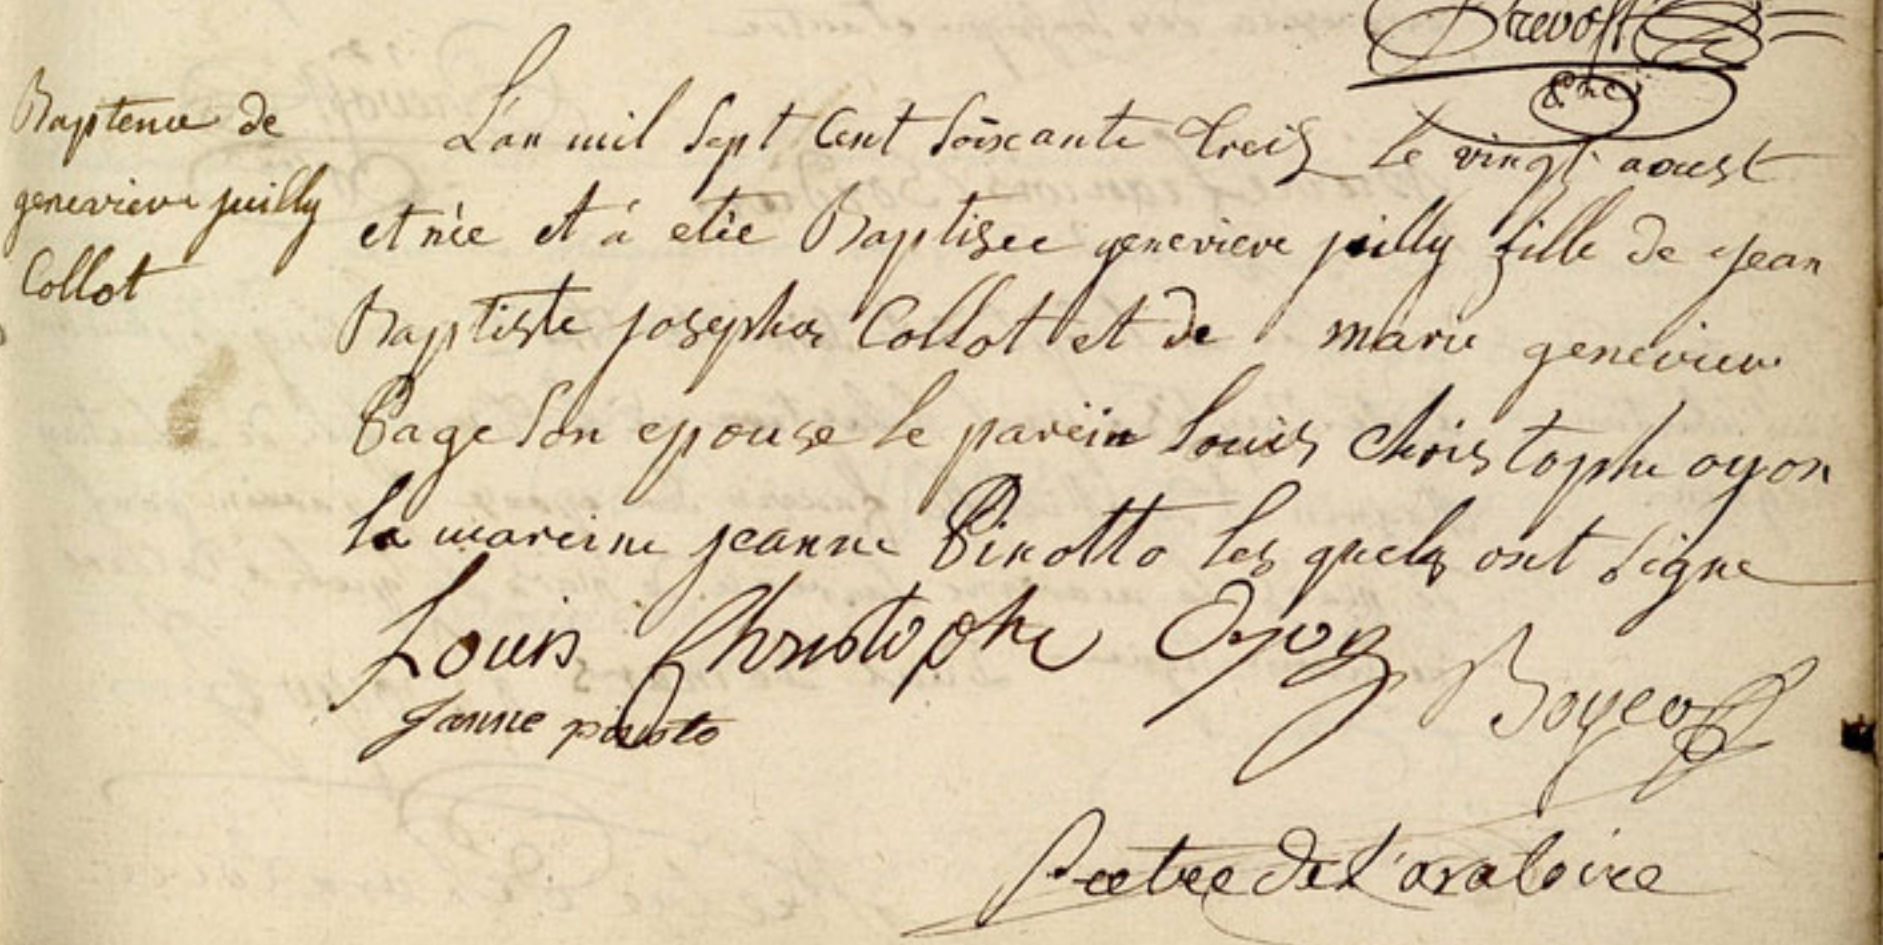 Prevost
Cure
Baptême de
genevieve juilly
Collot
L'an mil sept cent soixante treis le vingt aoust
et née et á etée Baptisee genevieve juilly fille de jean
Baptiste josephe Collot et de marie genevieve
Page son epouse le parein Louis Christophe oyon
la mareine jeanne Pinotto les quels ont signe
Louis Christophe Oyon
Janne pinoto
Prêtre de L'oratoire